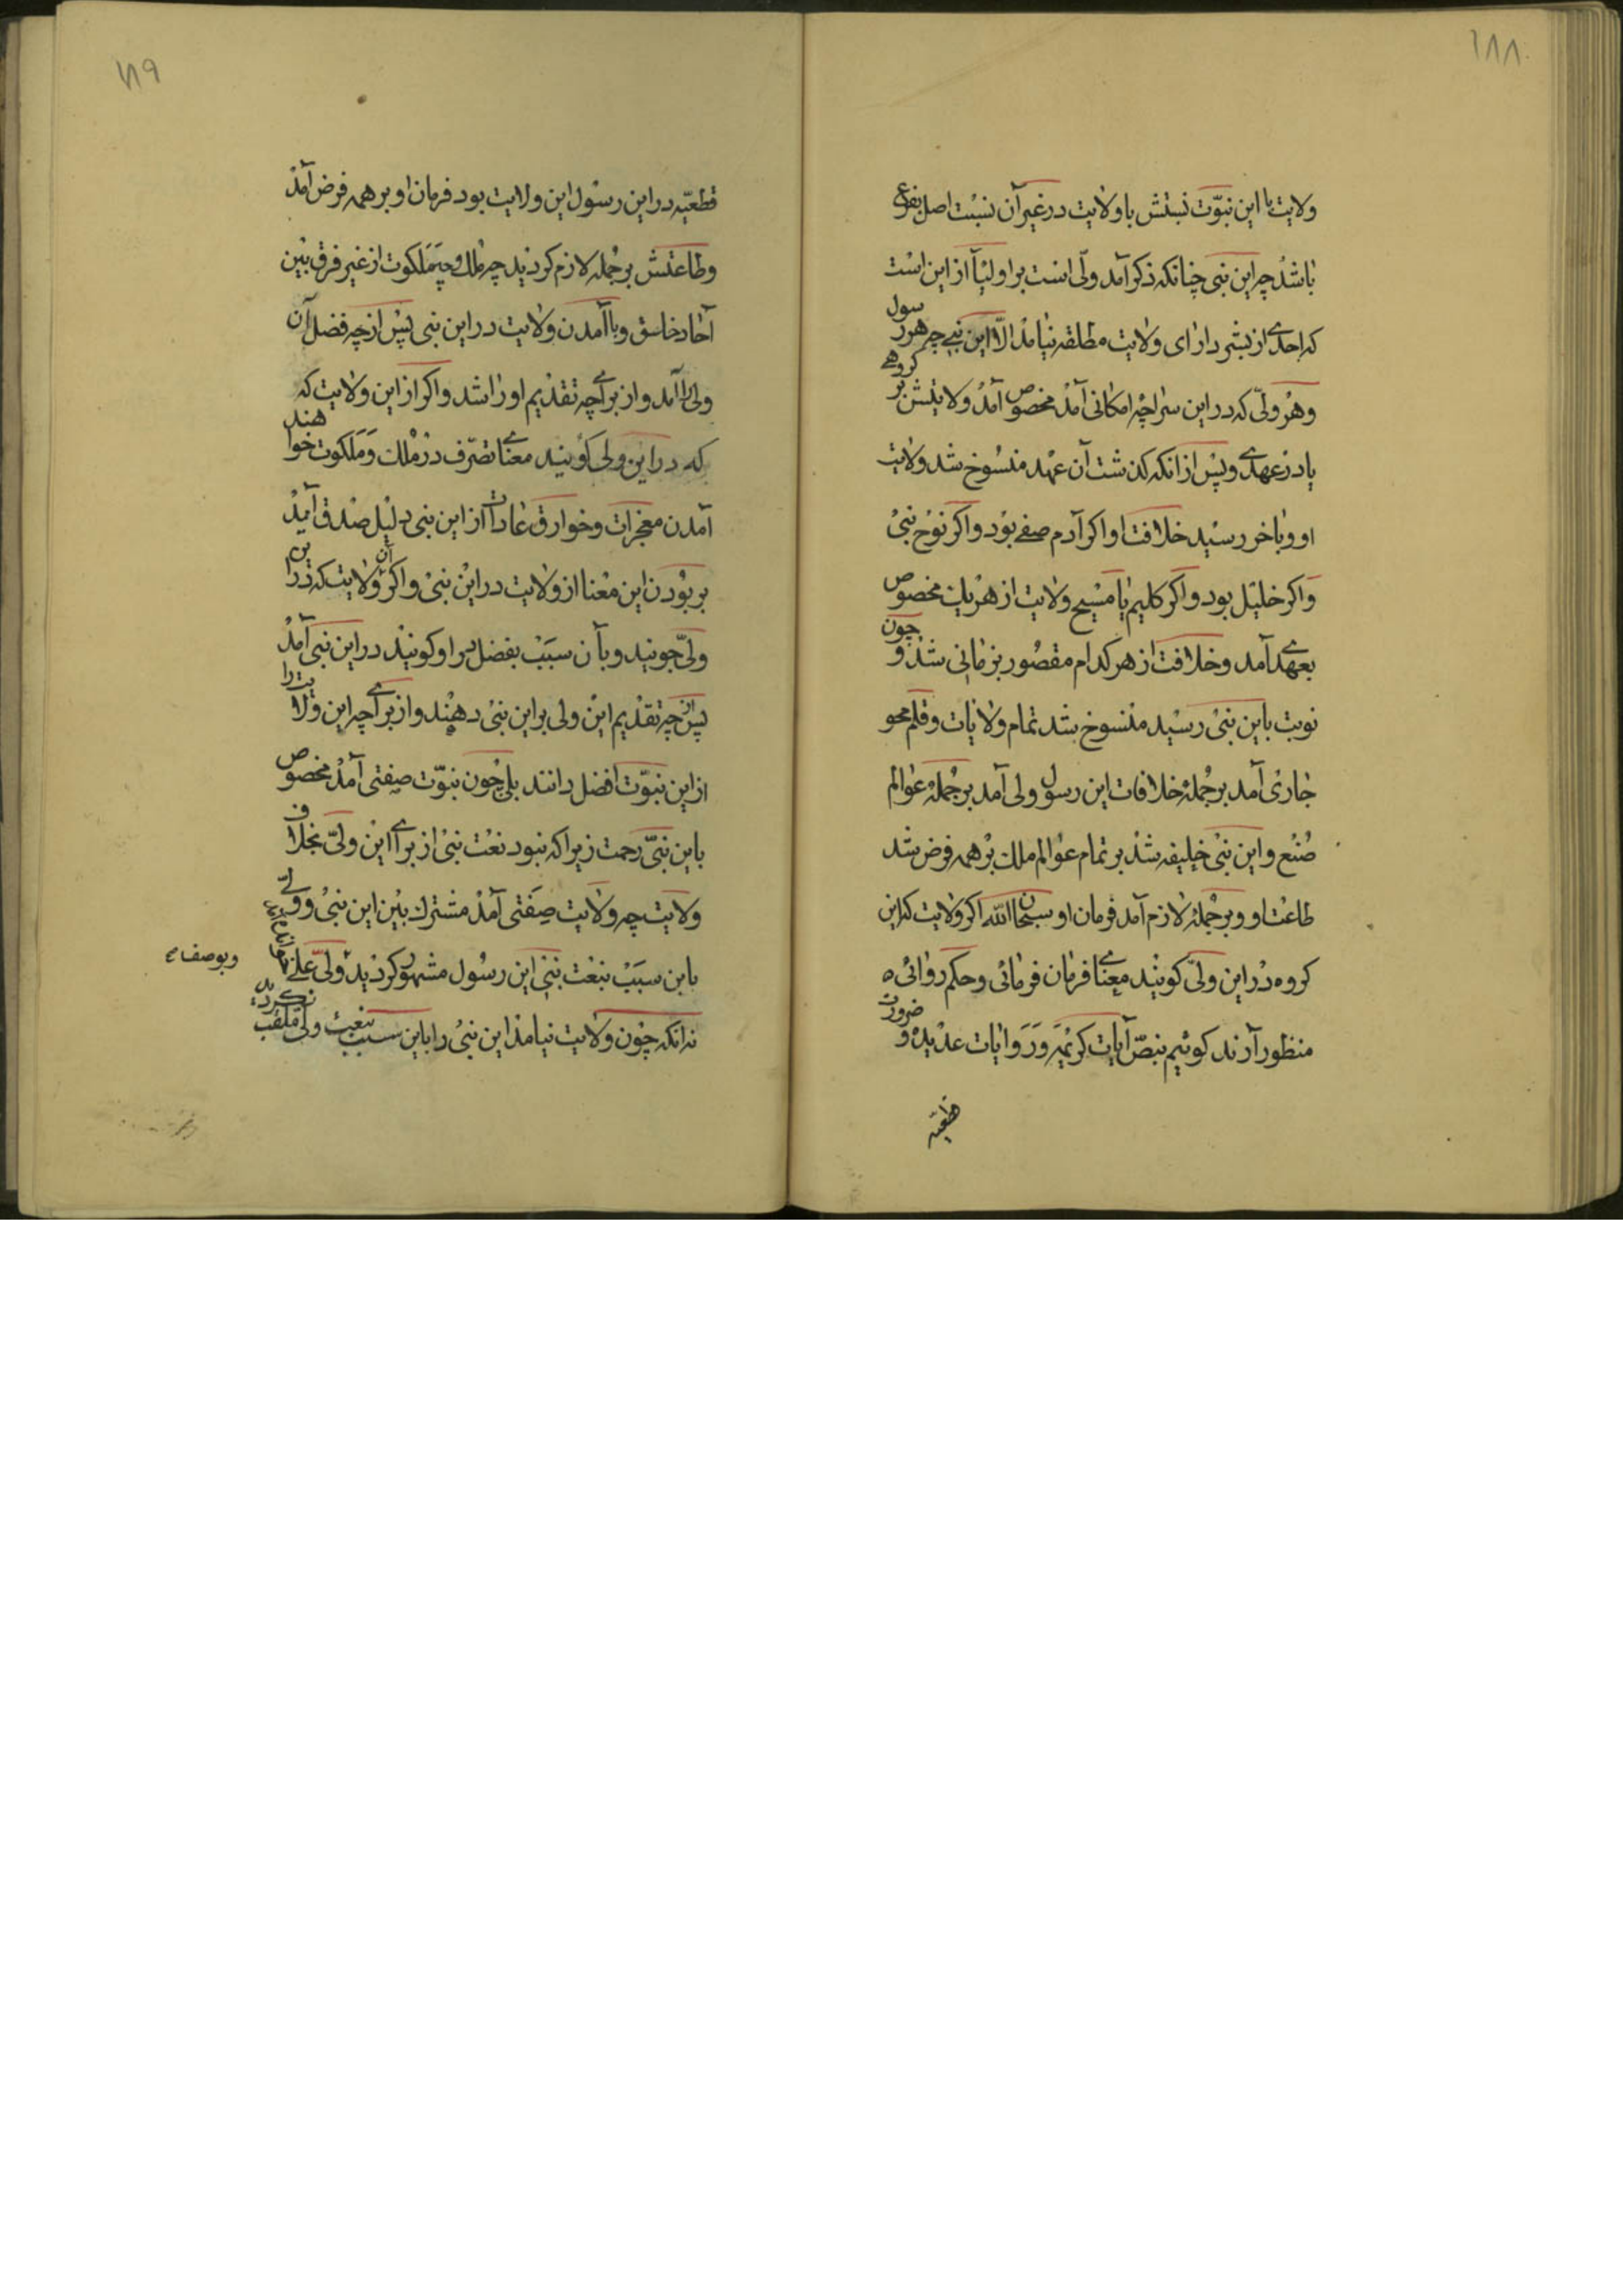 ۱۸۸
ولایت با این نبوّت نسبتش با ولایت در غیر آن نسبت اصل بفرع
باشد چه این نبی چنانکه ذکر آمد ولی است بر اولیآ از این است
که احدی از بشر دارای ولایت مطلقه نیامد الّا این نبی چه هر رسول
و هر ولیّ که در این سراچه امکانی آمد مخصوص آمد ولایتش بر گروهی
یا در عهدی و پس از انکه کذشت آن عهد منسوخ شد ولایت
او و باخر رسید خلافت او اکر آدم صفی بود و اکر نوح نبی
و اکر خلیل بود و اکر کلیم یا مسیح ولایت از هر یک مخصوص
بعهدی آمد و خلافت از هر کدام مقصور بزمانی شد و چون
نوبت باین نبی رسید منسوخ شد تمام ولایات و قلم محو
جاری آمد بر جملهٔ خلافات این رسول ولی آمد بر جملهٔ عوالم
صُنع و این نبی خلیفه شد بر تمام عوالم ملک بر همه فرض شد
طاعت او و بر جمله لازم آمد فرمان او سبحان الله اکر ولایت که این
کروه در این ولیّ کویند معنای فرمان فرمائی و حکم روائی ه
منظور آرند کوئیم بنصّ آیات کریمه و روایات عدیده و ضرورت
قطعیّه
۱۸۹
قطعیّه در این رسول این ولایت بود فرمان او بر همه فرض آمد
و طاعتش بر جمله لازم کردید چه ملک و چه مَلَکوت از غیر فرق بین
آحاد خاسق و با آمدن ولایت در این نبی پس از چه فضل آن
ولی را آمد و از برای چه تقدیم او را شد و اکر از این ولایت که
که در این ولی کویند معنای تصرّف در مُلک و مَلَکوت خواهند
آمدن معجزات و خوارق عادات از این نبی دلیل صدق آمد
بر بودن این معنا از ولایت در این نبی و اکر آن ولایت که در این
ولیّ جویند و بآن سَبَب بفضل بر او کویند در این نبی آمد
پس از چه تقدیم این ولی بر این نبی دهند و از برای چه این ولایت را
از این نبوّت افضل دانند بلی چون نبوّت صفتی آمد مخصوص
باین نبیّ رحمت زیرا که نبود نعت نبی از برای این ولیّ بخلاف
ولایت چه ولایت صِفَتی آمد مشترک بین این نبی و ولی
باین سبَبْ بنعْت نبی این رسُول مشهور کردید و ولیّ علی
و بوصف
نه انکه چون ولایت نیامد این نبی را باین سبب بنعت ولی ملقب نکردید